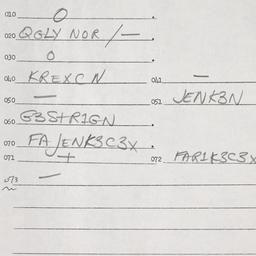 010 O .
020 QGLY NOR /— .
030 O .
040 KREXCN 041 —
050 — 051 JENK3N
060 G3StR1GN .
070 FAJENK3C3X .
071 + 072 FAR1K3C3X
073 —